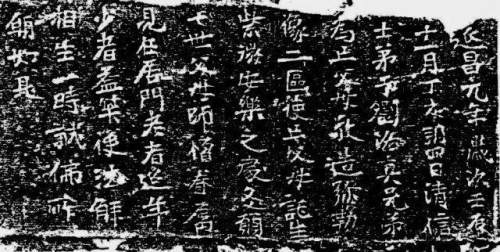 延昌元年歲次壬辰
十一月丁亥朔四日清信
士弟子劉洛真兄弟
為亡父母敬造彌勒
像二區使亡父母託生
紫微安樂之處又願
七世父母師僧眷屬
見在居門老者延年
少者益筭使法解
相生一時誠佛所
願如是